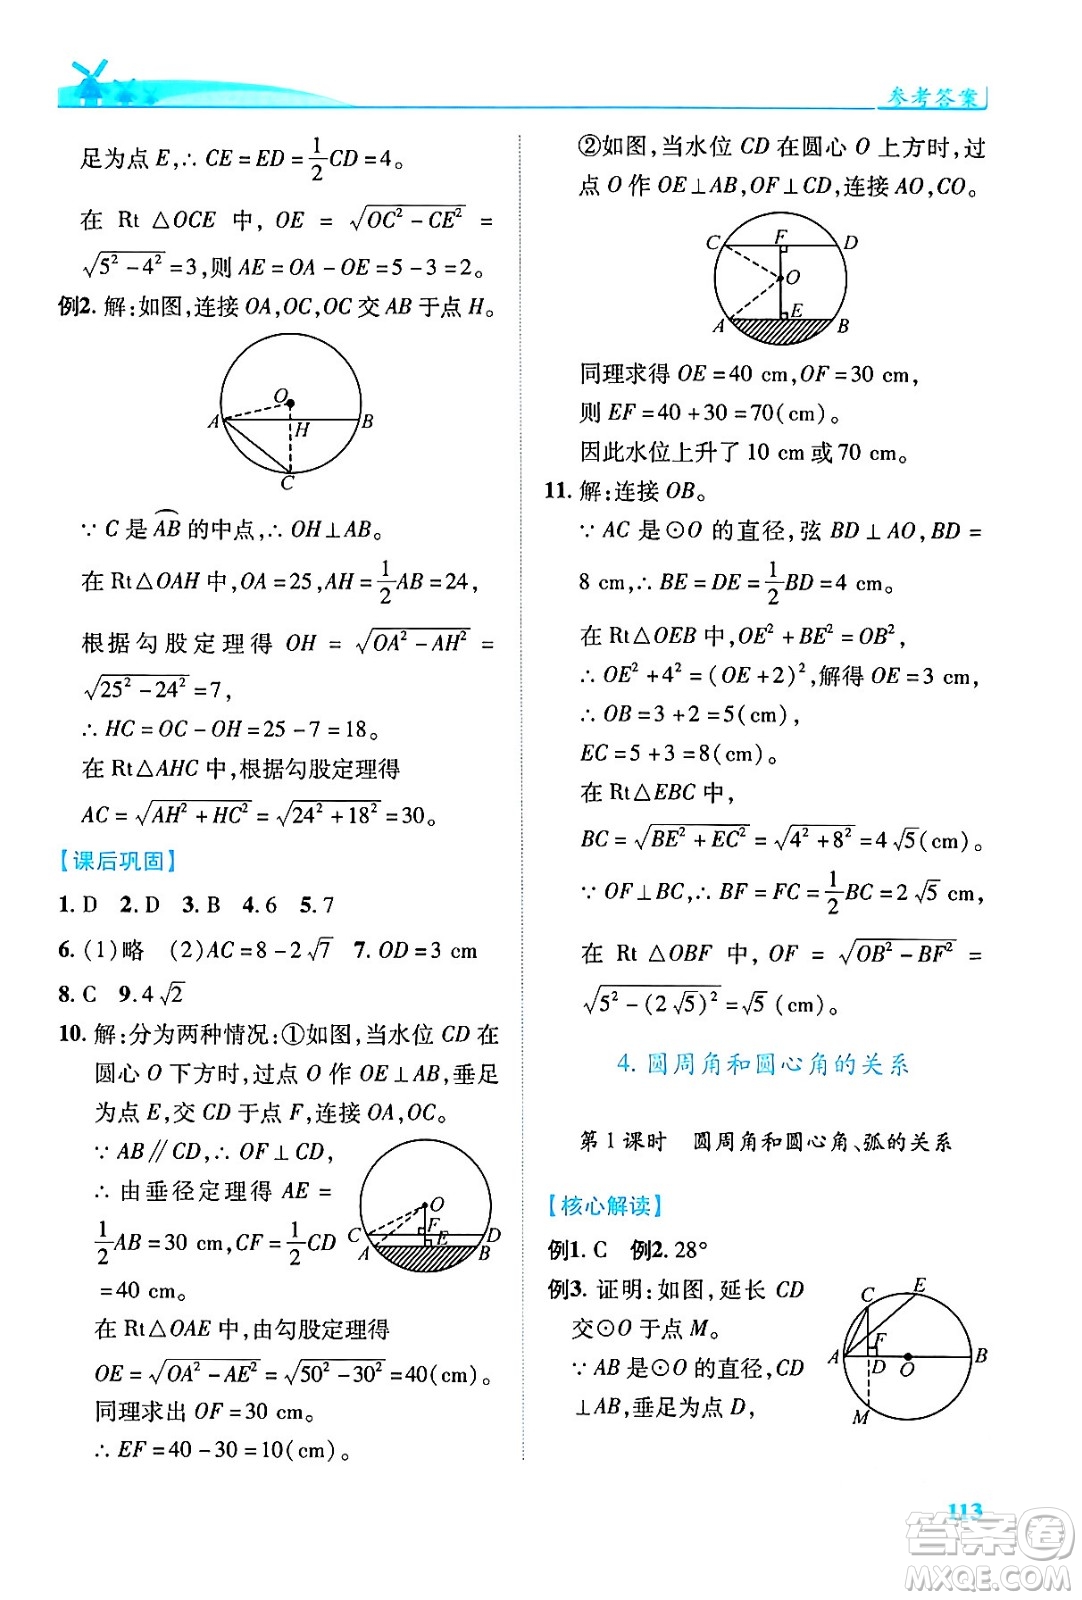 参考答案
足为点 E,∴ CE = ED = 1/2 CD = 4。
在 Rt △OCE 中, OE = √(OC² − CE²) =
√(5² − 4²) = 3,则 AE = OA − OE = 5 − 3 = 2。
例2. 解:如图,连接 OA,OC,OC 交 AB 于点 H。
O
A
H
B
C
∵ C 是 AB⌒ 的中点,∴ OH⊥AB。
在 Rt△OAH 中,OA = 25,AH = 1/2 AB = 24,
根据勾股定理得 OH = √(OA² − AH²) =
√(25² − 24²) = 7,
∴ HC = OC − OH = 25 − 7 = 18。
在 Rt△AHC 中,根据勾股定理得
AC = √(AH² + HC²) = √(24² + 18²) = 30。
【课后巩固】
1. D 2. D 3. B 4. 6 5. 7
6. (1)略 (2)AC = 8 − 2√7 7. OD = 3 cm
8. C 9. 4√2
10. 解:分为两种情况:①如图,当水位 CD 在
圆心 O 下方时,过点 O 作 OE⊥AB,垂足
为点 E,交 CD 于点 F,连接 OA,OC。
∵ AB∥CD,∴ OF⊥CD。
∴ 由垂径定理得 AE =
1/2 AB = 30 cm, CF = 1/2 CD
= 40 cm。
O
C
F
D
A
E
B
在 Rt△OAE 中,由勾股定理得
OE = √(OA² − AE²) = √(50² − 30²) = 40(cm)。
同理求出 OF = 30 cm。
∴ EF = 40 − 30 = 10(cm)。
②如图,当水位 CD 在圆心 O 上方时,过
点 O 作 OE⊥AB,OF⊥CD,连接 AO,CO。
C
F
D
O
A
E
B
同理求得 OE = 40 cm,OF = 30 cm,
则 EF = 40 + 30 = 70(cm)。
因此水位上升了 10 cm 或 70 cm。
11. 解:连接 OB。
∵ AC 是⊙O 的直径,弦 BD⊥AO,BD =
8 cm,∴ BE = DE = 1/2 BD = 4 cm。
在 Rt△OEB 中,OE² + BE² = OB²,
∴ OE² + 4² = (OE + 2)²,解得 OE = 3 cm,
∴ OB = 3 + 2 = 5(cm),
EC = 5 + 3 = 8(cm)。
在 Rt△EBC 中,
BC = √(BE² + EC²) = √(4² + 8²) = 4√5(cm)。
∵ OF⊥BC,∴ BF = FC = 1/2 BC = 2√5 cm,
在 Rt △OBF 中, OF = √(OB² − BF²) =
√(5² − (2√5)²) = √5 (cm)。
4. 圆周角和圆心角的关系
第 1 课时 圆周角和圆心角、弧的关系
【核心解读】
例1. C 例2. 28°
例3. 证明:如图,延长 CD
交⊙O 于点 M。
∵ AB 是⊙O 的直径,CD
⊥AB,垂足为点 D,
C
E
F
A
D
O
B
M
113
答案圈
MXQE.COM